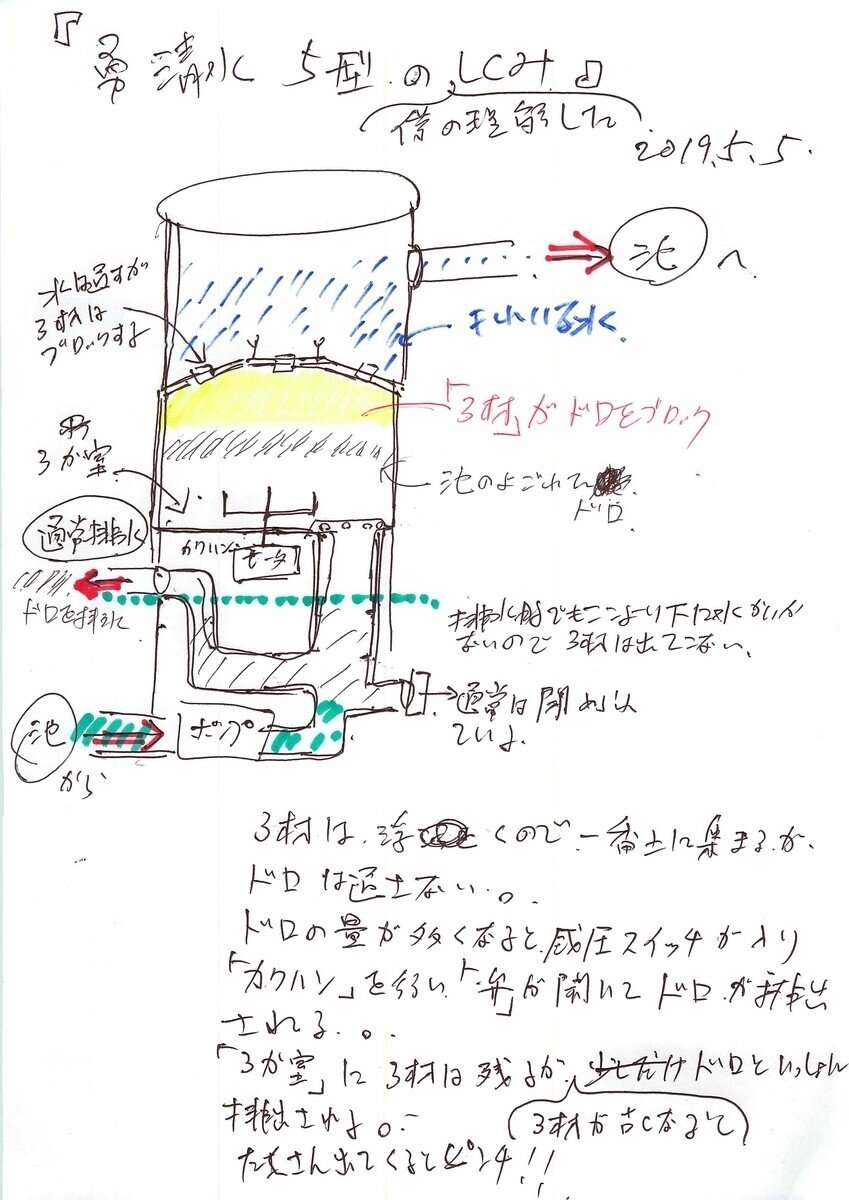 『勇清水 5型のしくみ』
僕の理解した
2019.5.5.
池へ
水は通すが
ろ材は
ブロックする
きれいな水
「ろ材」がドロをブロック
ろか室
池のよごれで
ドロ
通常排水
カクハン
モータ
ドロを排水
排水時でもここより下に水がいか
ないので ろ材は出てこない。
池
から
ポンプ
通常は閉め
ている
ろ材は浮くので一番上に集まるが、
ドロは通さない。
ドロの量が多くなると感圧スイッチが入り
「カクハン」を行い「弁」が開いてドロが排出
される。
「ろか室」にろ材は残るが、ドロといっしょに
排出される。
(ろ材が古くなると)
たくさん出てくるとピンチ!!